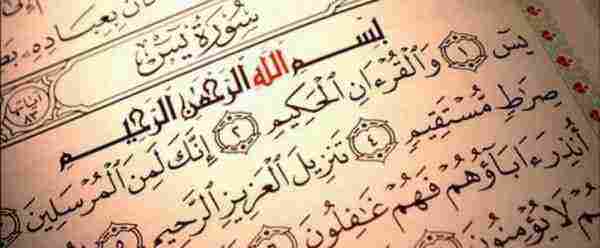 إِلَىٰ
بِعِبَادِهِۦ
سُورَةُ يسٓ
آيَاتُهَا ٨٣
بِسْمِ ٱللَّهِ ٱلرَّحْمَٰنِ ٱلرَّحِيمِ
يسٓ ١ وَٱلْقُرْءَانِ ٱلْحَكِيمِ ٢ إِنَّكَ لَمِنَ ٱلْمُرْسَلِينَ
صِرَٰطٍ مُّسْتَقِيمٍ ٤ تَنزِيلَ ٱلْعَزِيزِ ٱلرَّحِيمِ ٥
أُنذِرَ ءَابَآؤُهُمْ فَهُمْ غَٰفِلُونَ ٦
لَا يُؤْمِنُونَ